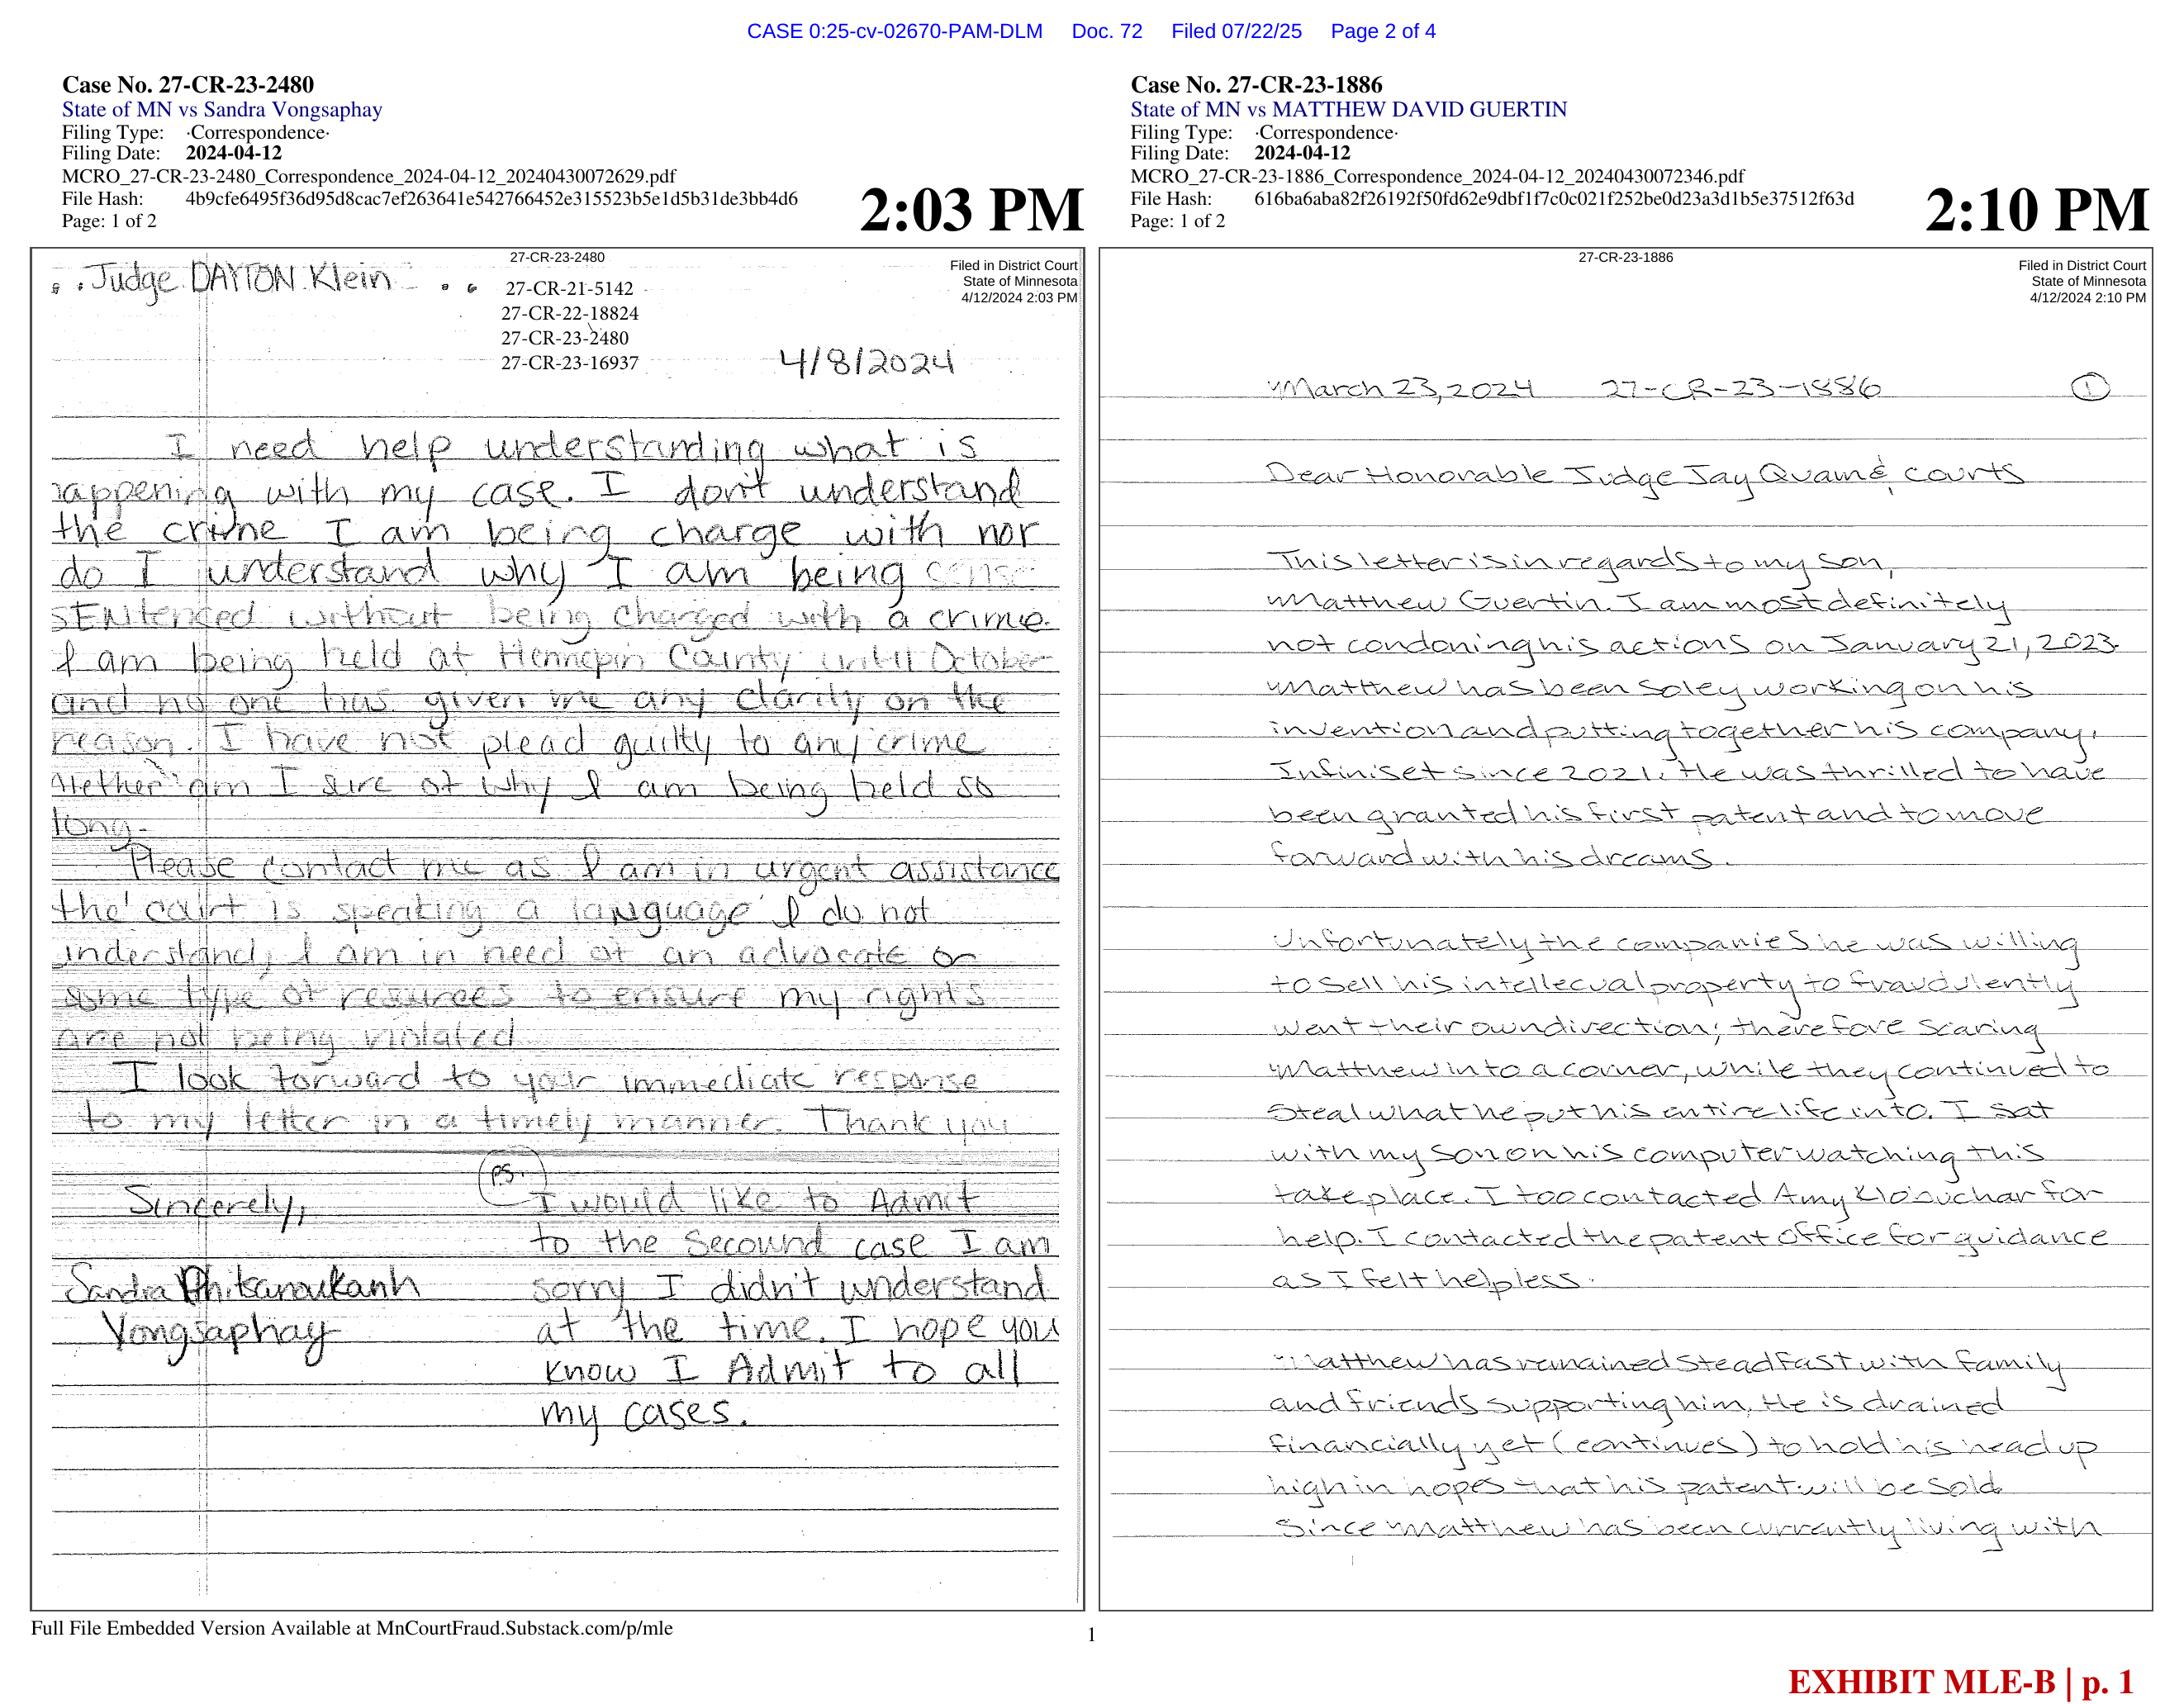 CASE 0:25-cv-02670-PAM-DLM Doc. 72 Filed 07/22/25 Page 2 of 4
Case No. 27-CR-23-2480
State of MN vs Sandra Vongsaphay
Filing Type: ·Correspondence·
Filing Date: 2024-04-12
MCRO_27-CR-23-2480_Correspondence_2024-04-12_20240430072629.pdf
File Hash: 4b9cfe6495f36d95d8cac7ef263641e542766452e315523b5e1d5b31de3bb4d6
Page: 1 of 2
2:03 PM
27-CR-23-2480
Filed in District Court
State of Minnesota
4/12/2024 2:03 PM
Judge DAYTON Klein
27-CR-21-5142
27-CR-22-18824
27-CR-23-2480
27-CR-23-16937
4/8/2024
I need help understanding what is
happening with my case. I don't understand
the crime I am being charge with nor
do I understand why I am being
SENtenced without being charged with a crime.
I am being held at Hennepin County until October
and no one has given me any clarity on the
reason. I have not plead guilty to any crime
Nether am I sure of why I am being held so
long.
Please contact me as I am in urgent assistance
the court is speaking a language I do not
understand, I am in need of an advocate or
some type of resources to ensure my rights
are not being violated
I look forward to your immediate response
to my letter in a timely manner. Thank you
Sincerely,
Sandra Phitsanoukanh
Vongsaphay
PS.
I would like to Admit
to the Secound case I am
sorry I didn't understand
at the time. I hope you
know I Admit to all
my cases.
Case No. 27-CR-23-1886
State of MN vs MATTHEW DAVID GUERTIN
Filing Type: ·Correspondence·
Filing Date: 2024-04-12
MCRO_27-CR-23-1886_Correspondence_2024-04-12_20240430072346.pdf
File Hash: 616ba6aba82f26192f50fd62e9dbf1f7c0c021f252be0d23a3d1b5e37512f63d
Page: 1 of 2
2:10 PM
27-CR-23-1886
Filed in District Court
State of Minnesota
4/12/2024 2:10 PM
March 23, 2024 27-CR-23-1886 1
Dear Honorable Judge Jay Quam & courts
This letter is in regards to my son,
Matthew Guertin. I am most definitely
not condoning his actions on January 21, 2023.
Matthew has been soley working on his
invention and putting together his company,
Infiniset since 2021. He was thrilled to have
been granted his first patent and to move
forward with his dreams.
Unfortunately the companies he was willing
to sell his intellecual property to fraudulently
went their own direction; therefore scaring
Matthew into a corner, while they continued to
steal what he put his entire life into. I sat
with my son on his computer watching this
take place. I too contacted Amy Klobuchar for
help. I contacted the patent office for guidance
as I felt helpless.
Matthew has remained steadfast with family
and friends supporting him. He is drained
financially yet (continues) to hold his head up
high in hopes that his patent will be sold.
Since Matthew has been currently living with
Full File Embedded Version Available at MnCourtFraud.Substack.com/p/mle
1
EXHIBIT MLE-B | p. 1